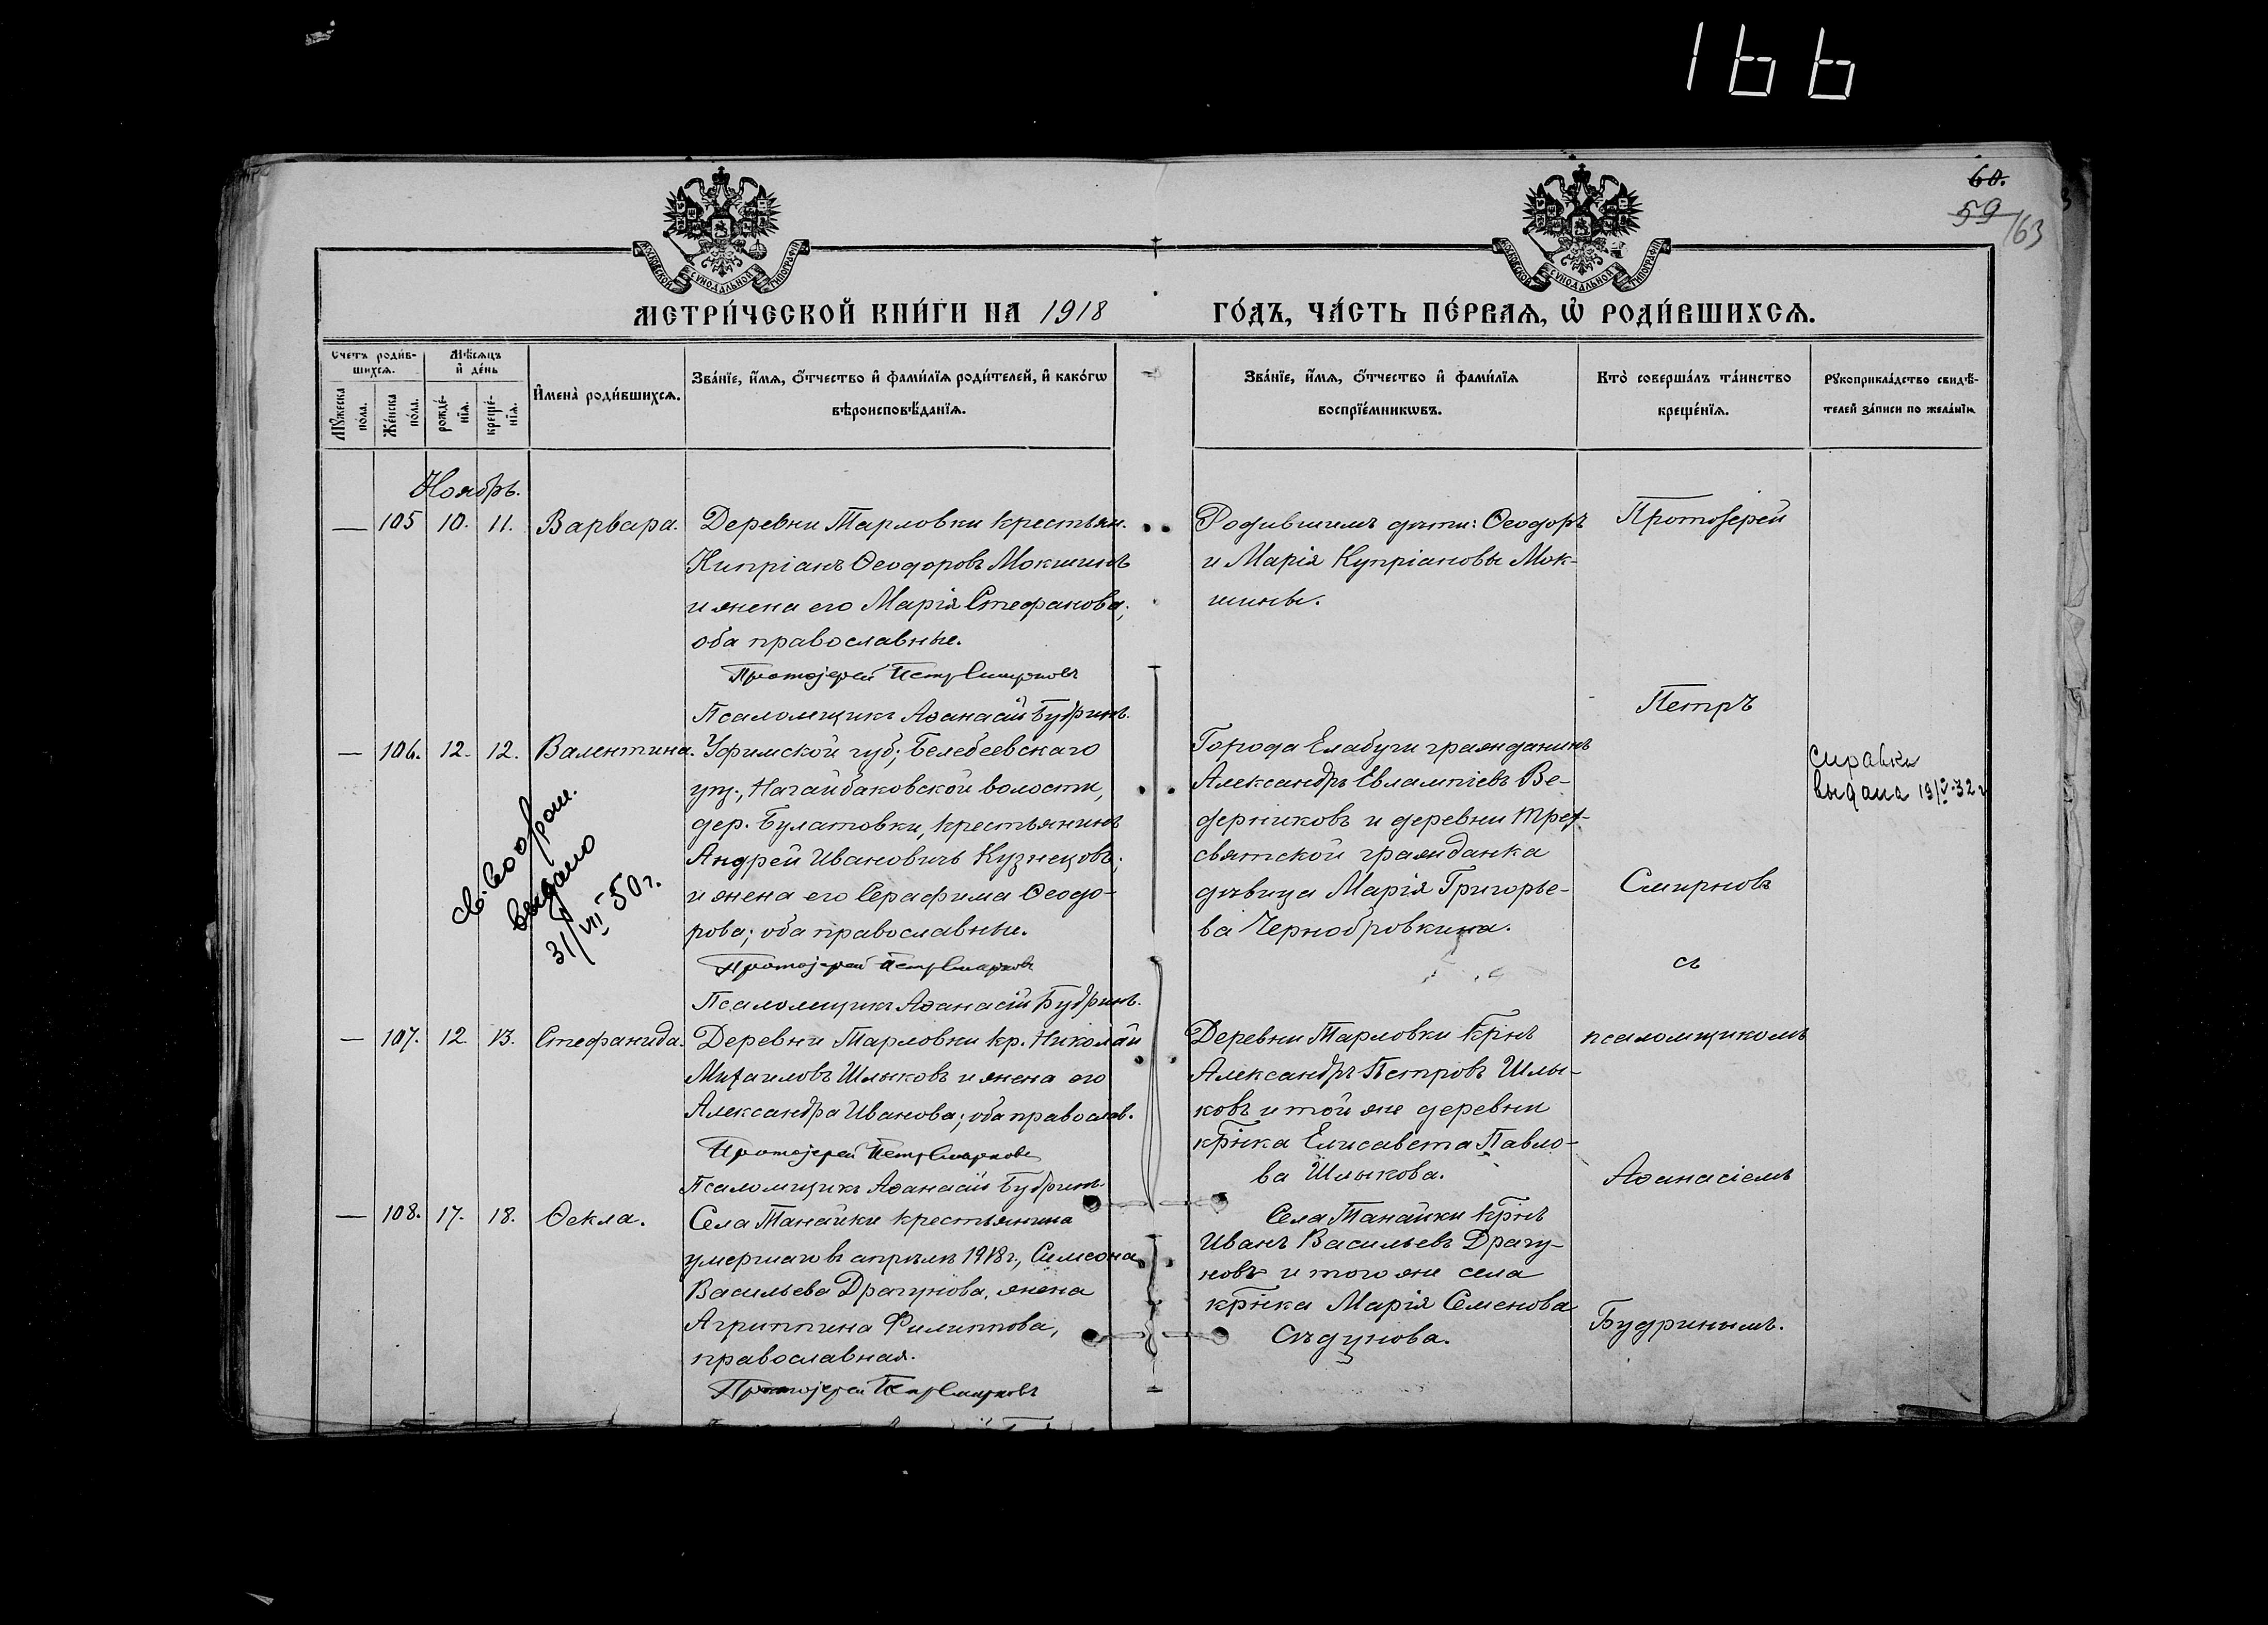 166
60.
59/63
МОСКОВСКОЙ СѴНОДАЛЬНОЙ ТИПОГРАФІИ
МОСКОВСКОЙ СѴНОДАЛЬНОЙ ТИПОГРАФІИ
МЕТРИ́ЧЕСКОЙ КНИ́ГИ НА 1918
ГО́ДЪ, ЧА́СТЬ ПЕ́РВАѦ, Ѡ҆ РОДИ́ВШИХСѦ.
Счетъ роди́в-
шихсѧ.
Мѣ́сѧцъ
и҆ де́нь
Мꙋ́жеска
по́ла.
Же́нска
по́ла.
рожде́-
нїѧ.
креще́-
нїѧ.
И҆мена̀ роди́вшихсѧ.
Зва́нїе, и҆́мѧ, ѻ҆́тчество и҆ фами́лїѧ роди́телей, и҆ како́гѡ
вѣроисповѣ́данїѧ.
Зва́нїе, и҆́мѧ, ѻ҆́тчество и҆ фами́лїѧ
воспрїе́мникѡвъ.
Кто̀ соверша́лъ та́инство
креще́нїѧ.
Рꙋкоприкла́дство свидѣ́-
телей за́писи по жела́нїю.
Ноябрь.
— 105 10. 11. Варвара.
Деревни Тарловки крестьян.
Кипріанъ Ѳеодоровъ Мокшинъ
и жена его Марія Стефанова;
оба православные.
Протоіерей Петр Смирновъ
Псаломщикъ Аѳанасій Будринъ.
Родившимъ дѣти: Ѳеодоръ
и Марія Купріановы Мок-
шины.
Протоіерей
Петръ
Смирновъ
съ
псаломщикомъ
Аѳанасіемъ
Будринымъ.
— 106. 12. 12. Валентина.
Уфимской губ; Белебеевскаго
уѣз., Нагайбаковской волости,
дер. Булатовки, крестьянинъ
Андрей Ивановичъ Кузнецовъ;
и жена его Серафима Ѳеодо-
рова; оба православные.
Протоіерей Петр Смирновъ
Псаломщикъ Аѳанасій Будринъ.
Города Елабуги гражданинъ
Александръ Евлампіевъ Ве-
дерниковъ и деревни Трех-
святской гражданка
дѣвица Марія Григорье-
ва Чернобровкина.
справка
выдана 19/V-32 г
выдано
31/VII 50 г.
— 107. 12. 13. Стефанида.
Деревни Тарловки кр. Николай
Михаиловъ Шлыковъ и жена его
Александра Иванова; оба православ.
Протоіерей Петр Смирновъ
Псаломщикъ Аѳанасій Будринъ
Деревни Тарловки крнъ
Александръ Петровъ Шлы-
ковъ и той же деревни
крнка Елисавета Павло-
ва Шлыкова.
— 108. 17. 18. Ѳекла.
Села Танайки крестьянина
умершаго въ апрѣлѣ 1918 г., Симеона
Васильева Драгунова, жена
Агриппина Филиппова,
православная.
Протоіерей Петр Смирновъ
Села Танайки крнъ
Иванъ Васильевъ Драгу-
новъ и того же села
крнка Марія Семенова
Сѣдунова.